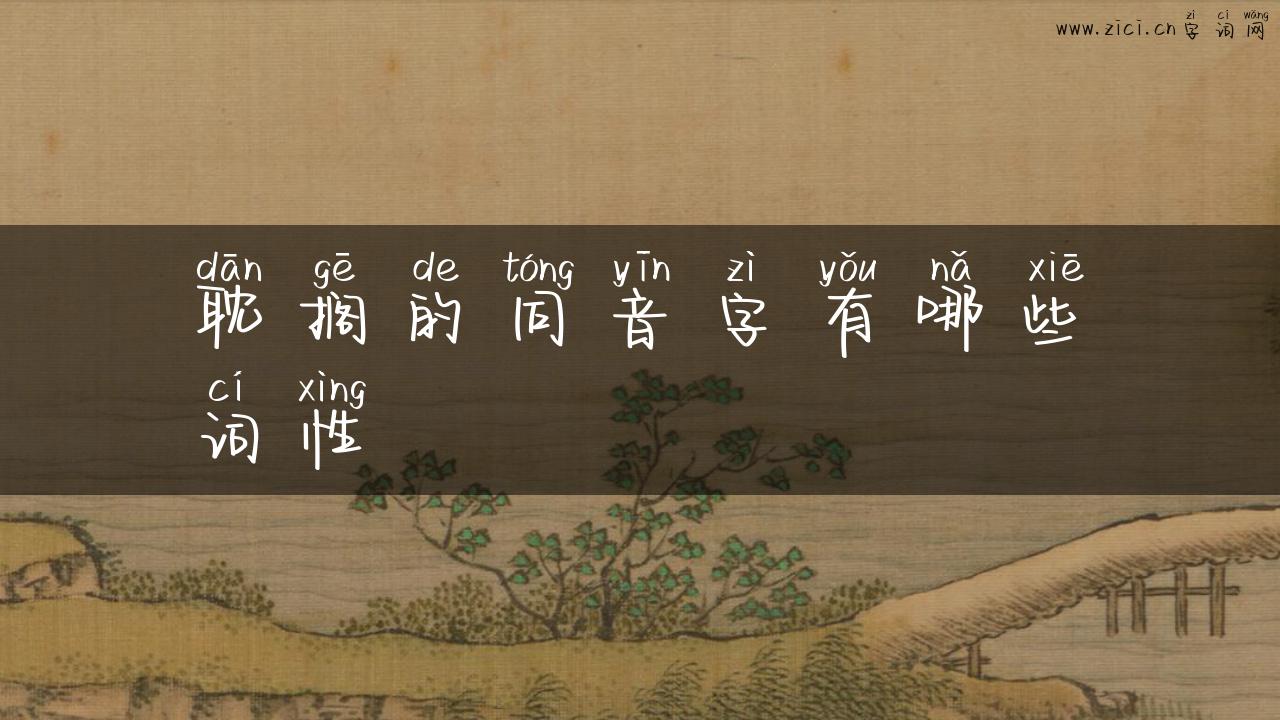 zì cí wǎng
www.zici.cn 字词网
dān gē de tóng yīn zì yǒu nǎ xiē
耽搁的同音字有哪些
cí xìng
词性